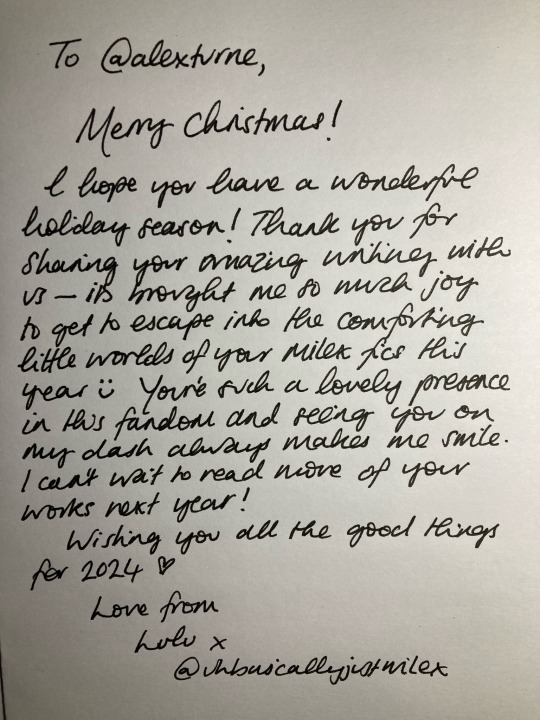 To @alexturne,
Merry Christmas!
I hope you have a wonderful
holiday season! Thank you for
sharing your amazing writing with
us – its brought me so much joy
to get to escape into the comforting
little worlds of your milex fics this
year ü You're such a lovely presence
in this fandom and seeing you on
my dash always makes me smile.
I can't wait to read more of your
works next year!
Wishing you all the good things
for 2024 ♡
Love from
Lulu x
@uhbasicallyjustmilex